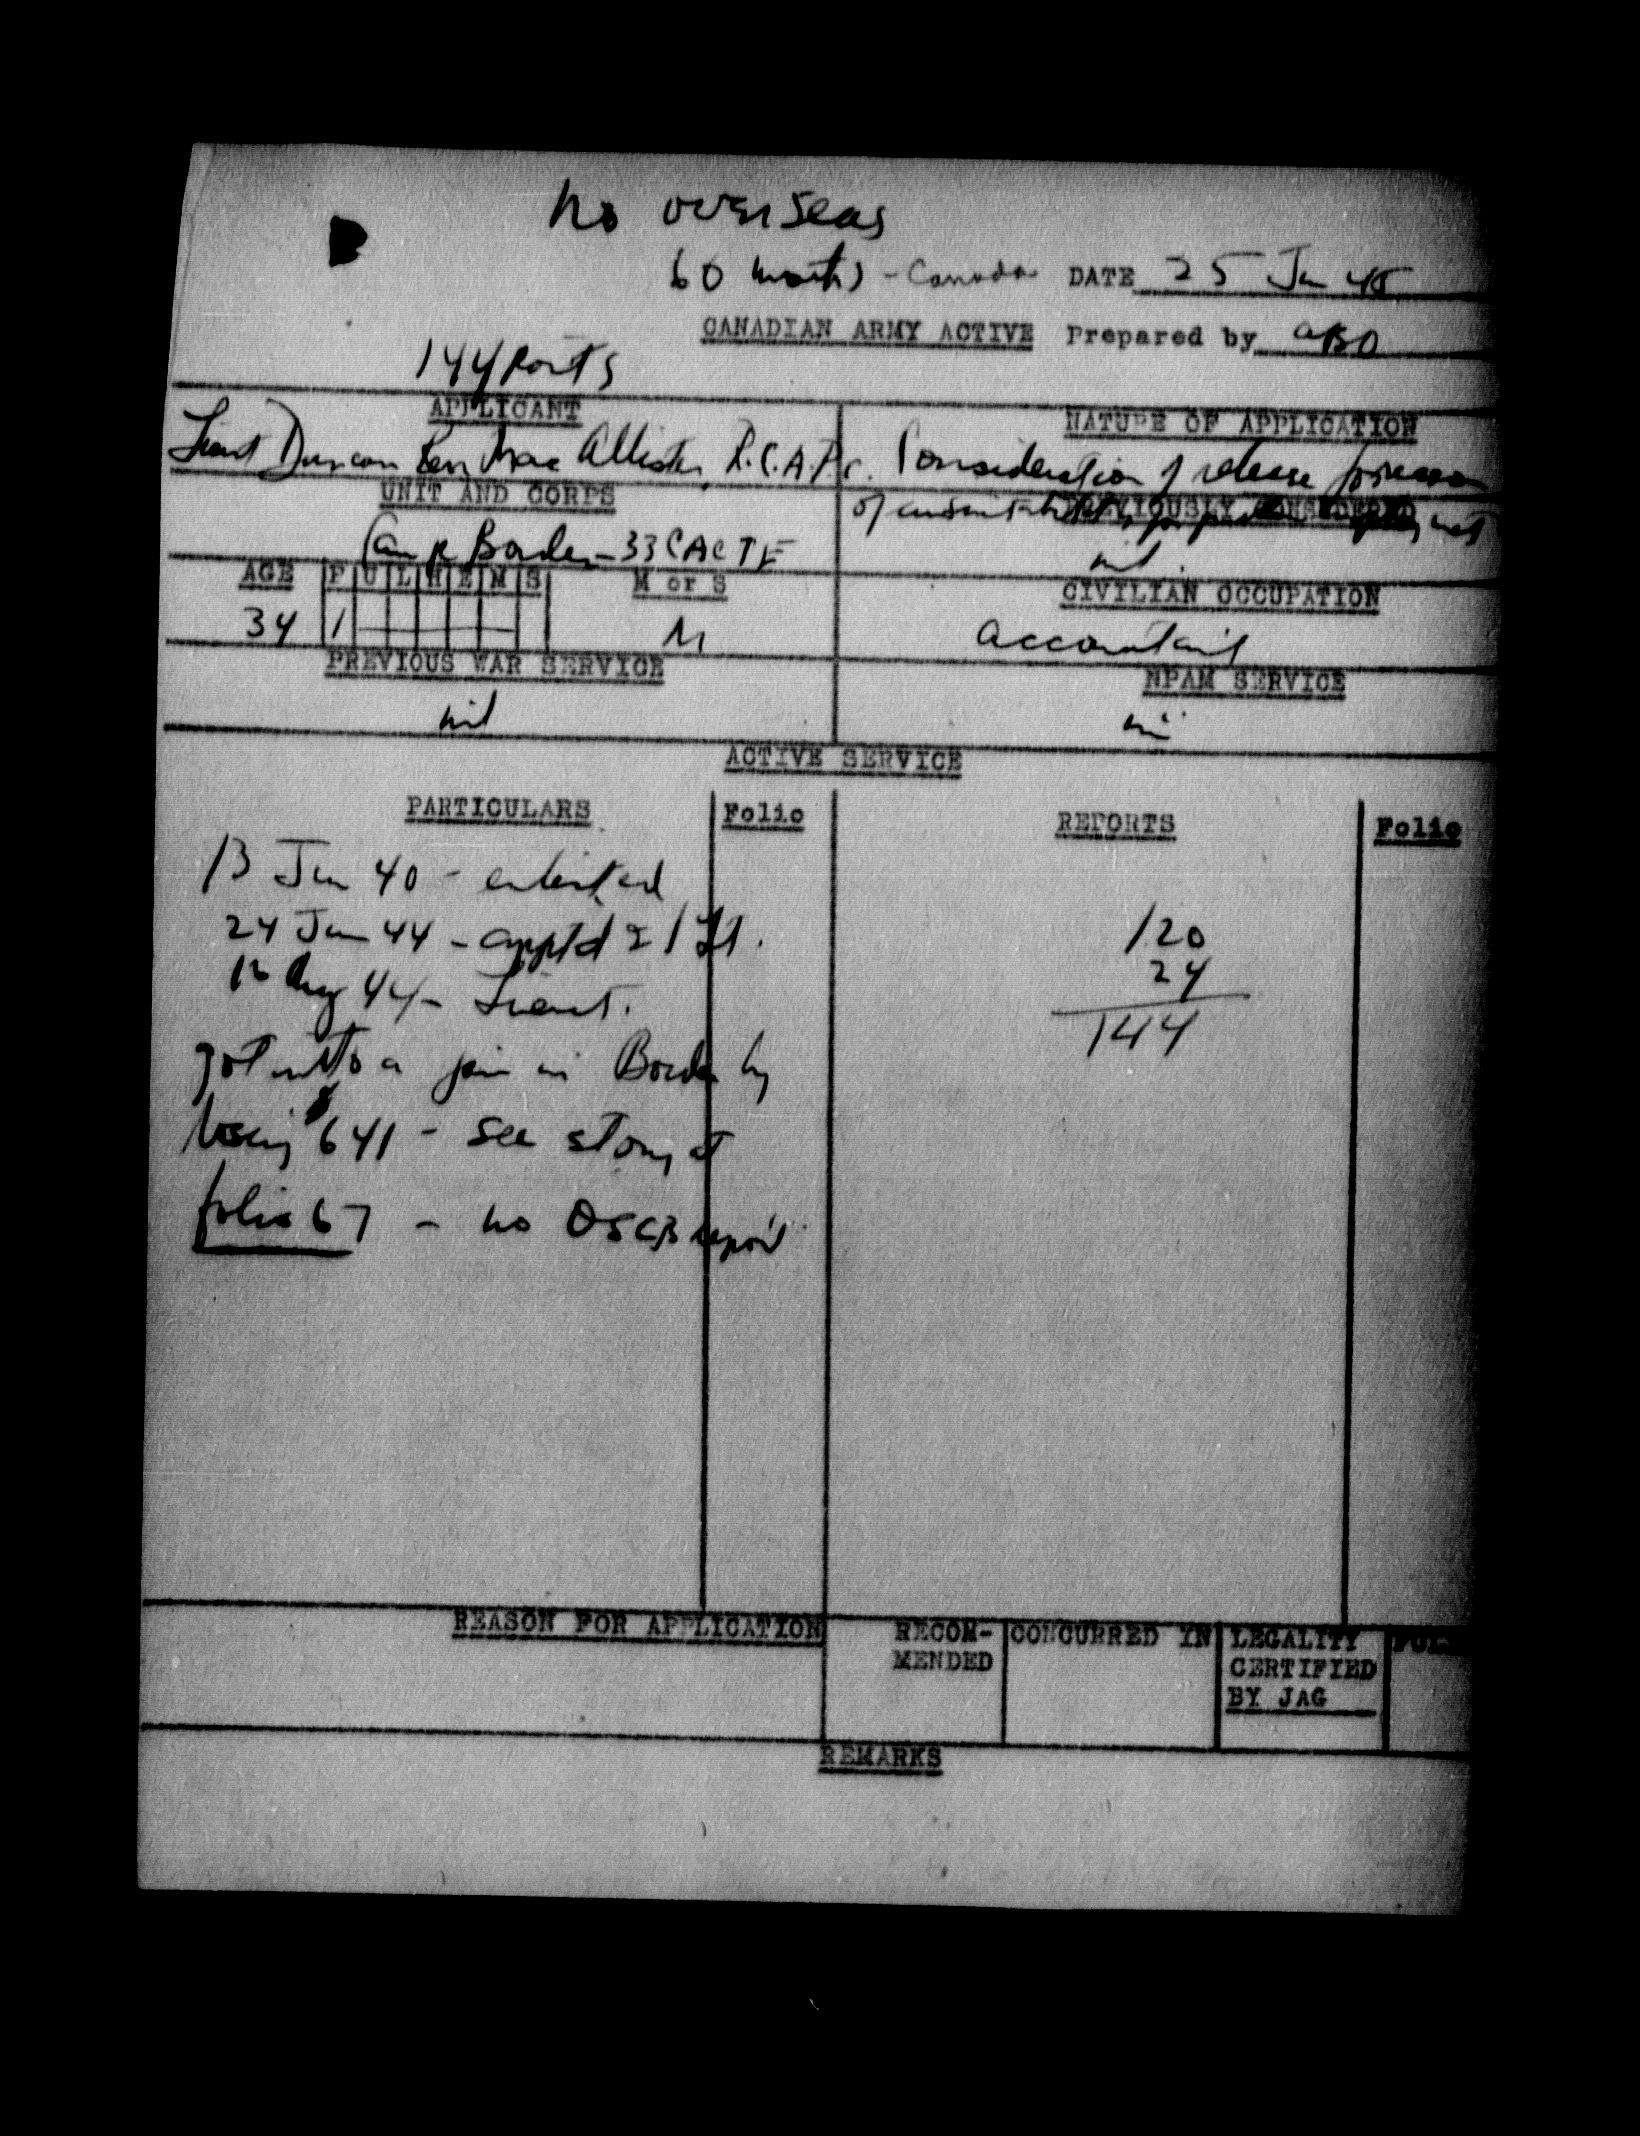 no overseas
60 months - Canada DATE 25 Jun 45
CANADIAN ARMY ACTIVE Prepared by
144 points
APPLICANT NATURE OF APPLICATION
Lieut Duncan MacAllister, R.C.A.P.C. Consideration of release for reason
UNIT AND CORPS PREVIOUSLY CONSIDERED
of
Camp Borden - 33 CACTE nil.
AGE P U L H E M S M or S CIVILIAN OCCUPATION
34 1 M accountant
PREVIOUS WAR SERVICE NPAM SERVICE
nil nil
ACTIVE SERVICE
PARTICULARS Folio REPORTS Folio
13 Jun 40 - enlisted
24 Jun 44 - apptd 2/Lt. 120
Aug 44 - Lieut. 24
144
got into a jam in Borden by
losing $641 - see story at
folio 67 - no OSCB report
REASON FOR APPLICATION RECOM- CONCURRED IN LEGALITY
MENDED CERTIFIED
BY JAG
REMARKS